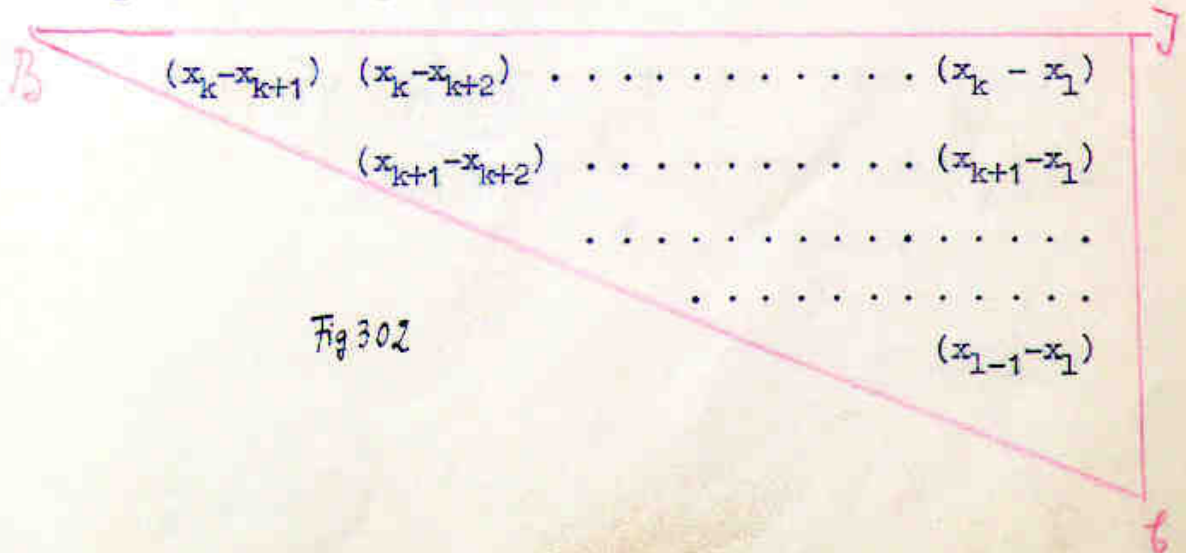 J
B
(x_k-x_{k+1}) (x_k-x_{k+2}) . . . . . . . . . . . (x_k - x_l)
(x_{k+1}-x_{k+2}) . . . . . . . . . . (x_{k+1}-x_l)
. . . . . . . . . . . . . . .
. . . . . . . . . . . .
Fig 302
(x_{l-1}-x_l)